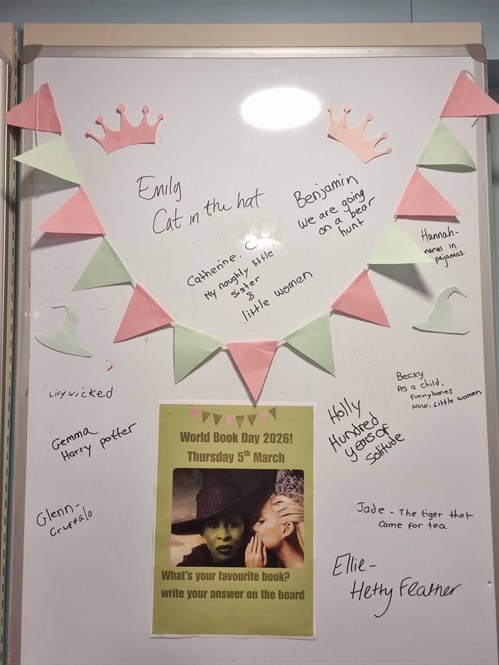 Emily
Cat in the hat
Benjamin
We are going
on a bear
hunt
Catherine. C
My naughty little
sister
&
little women
Hannah-
nanas in
pajamas.
Lucy wicked
Gemma
Harry potter
Glenn-
Gruffalo
Becky
As a child,
funnybones
Now, Little women
Holly
Hundred
years of
Solitude
Jade - The tiger that
came for tea
Ellie-
Hetty Feather
World Book Day 2026!
Thursday 5th March
What's your favourite book?
write your answer on the board